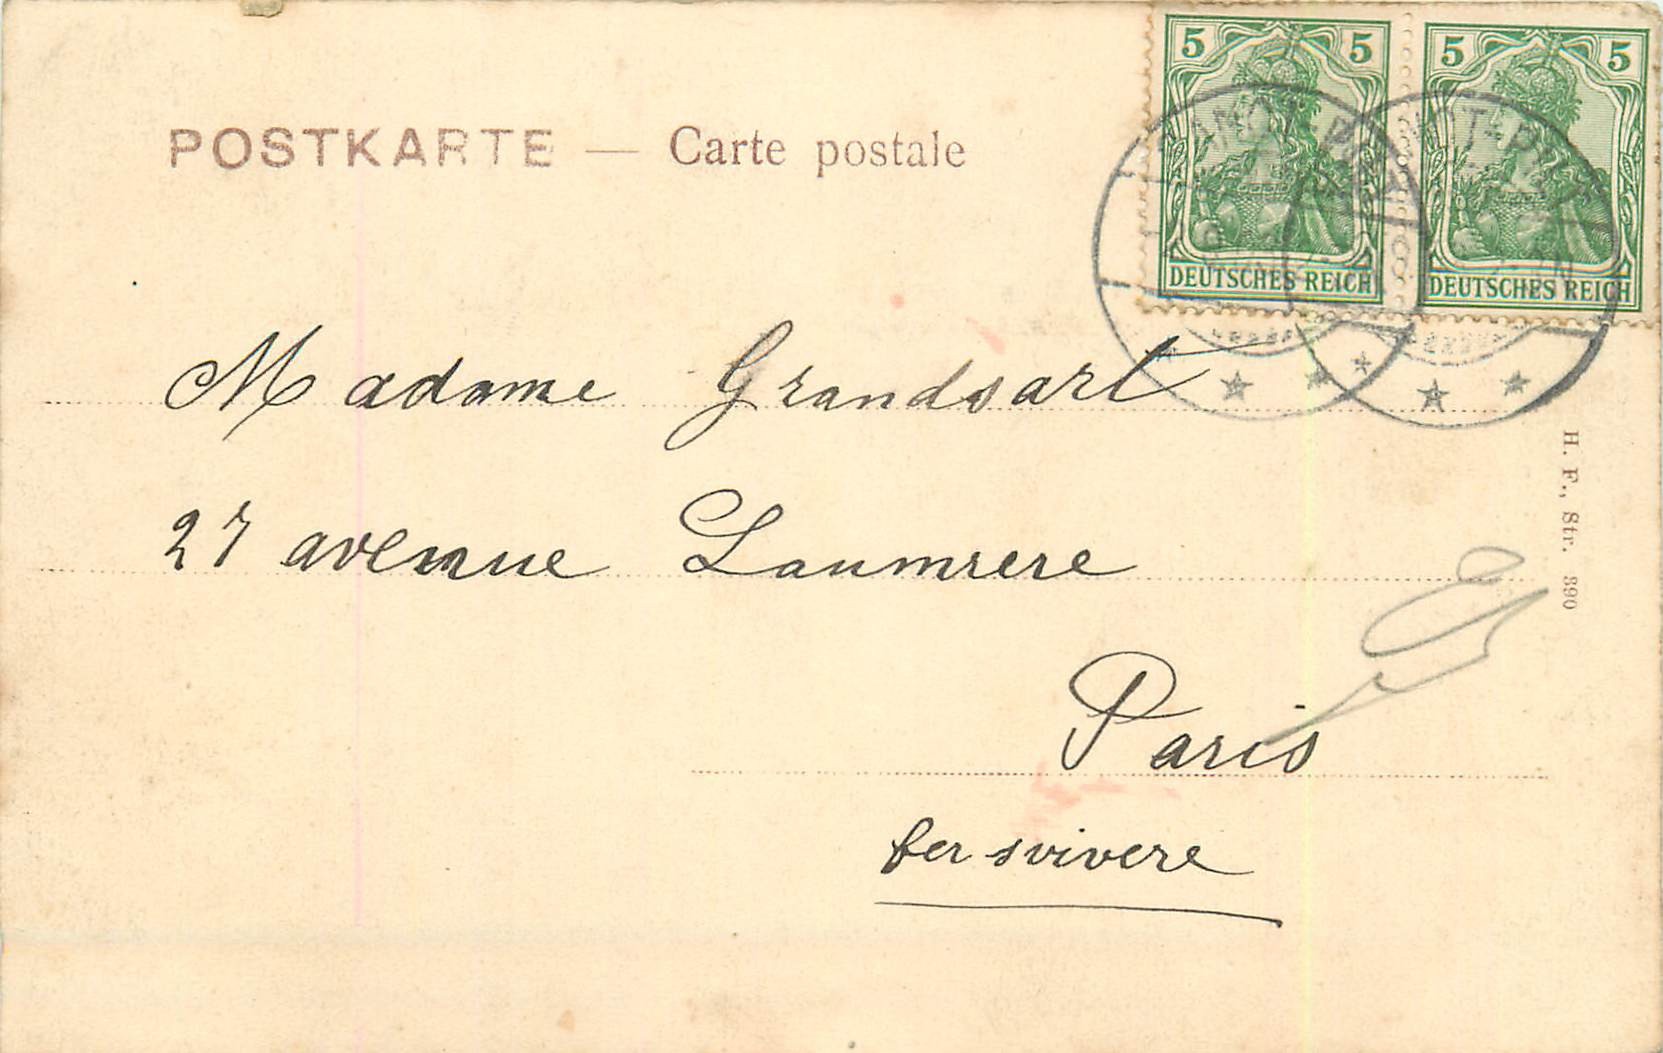 POSTKARTE — Carte postale
5 5 5 5
DEUTSCHES REICH DEUTSCHES REICH
Madame Grandsart
27 avenue Laumrere
Paris
H. F., Str. 390